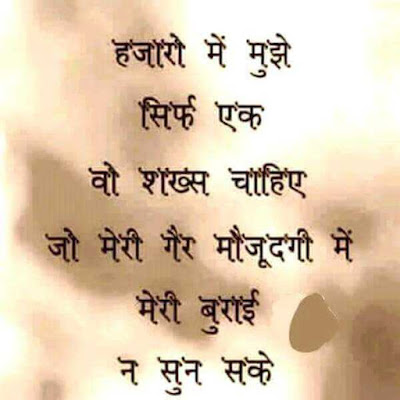 हजारो में मुझे
सिर्फ एक
वो शख्स चाहिए
जो मेरी गैर मौजूदगी में
मेरी बुराई
न सुन सके